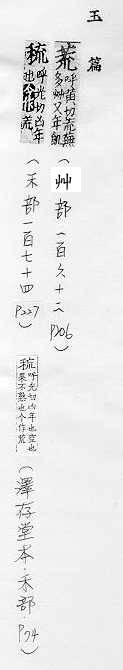 玉篇
荒呼黄切荒蕪也多艸又年飢
(艸部一百六十二P206)
𥞩呼光切凶年也今作荒
(禾部一百七十四P227)
𥞩呼光切凶年也空也果不熟也今作荒
(澤存堂本.禾部.P74)